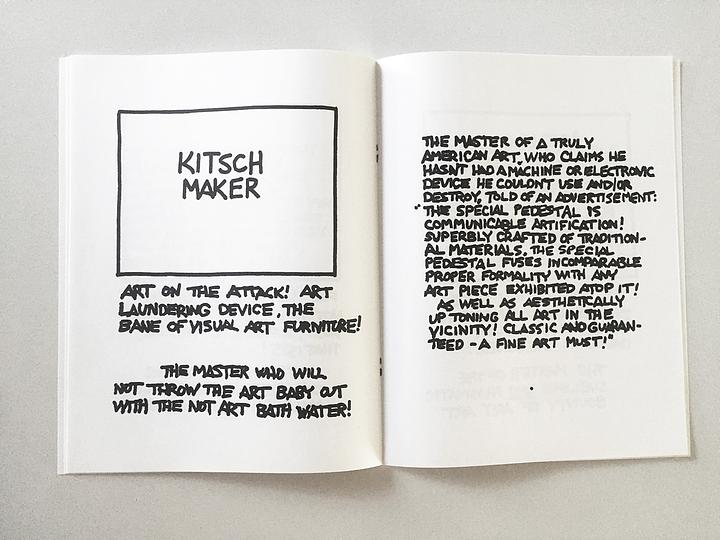 KITSCH
MAKER
ART ON THE ATTACK! ART
LAUNDERING DEVICE, THE
BANE OF VISUAL ART FURNITURE!
THE MASTER WHO WILL
NOT THROW THE ART BABY OUT
WITH THE NOT ART BATH WATER!
THE MASTER OF A TRULY
AMERICAN ART, WHO CLAIMS HE
HASN'T HAD A MACHINE OR ELECTRONIC
DEVICE HE COULDN'T USE AND/OR
DESTROY, TOLD OF AN ADVERTISEMENT:
"THE SPECIAL PEDESTAL IS
COMMUNICABLE ARTIFICATION!
SUPERBLY CRAFTED OF TRADITION-
AL MATERIALS, THE SPECIAL
PEDESTAL FUSES INCOMPARABLE
PROPER FORMALITY WITH ANY
ART PIECE EXHIBITED ATOP IT!
AS WELL AS AESTHETICALLY
UP TONING ALL ART IN THE
VICINITY! CLASSIC AND GUARAN-
TEED - A FINE ART MUST!"